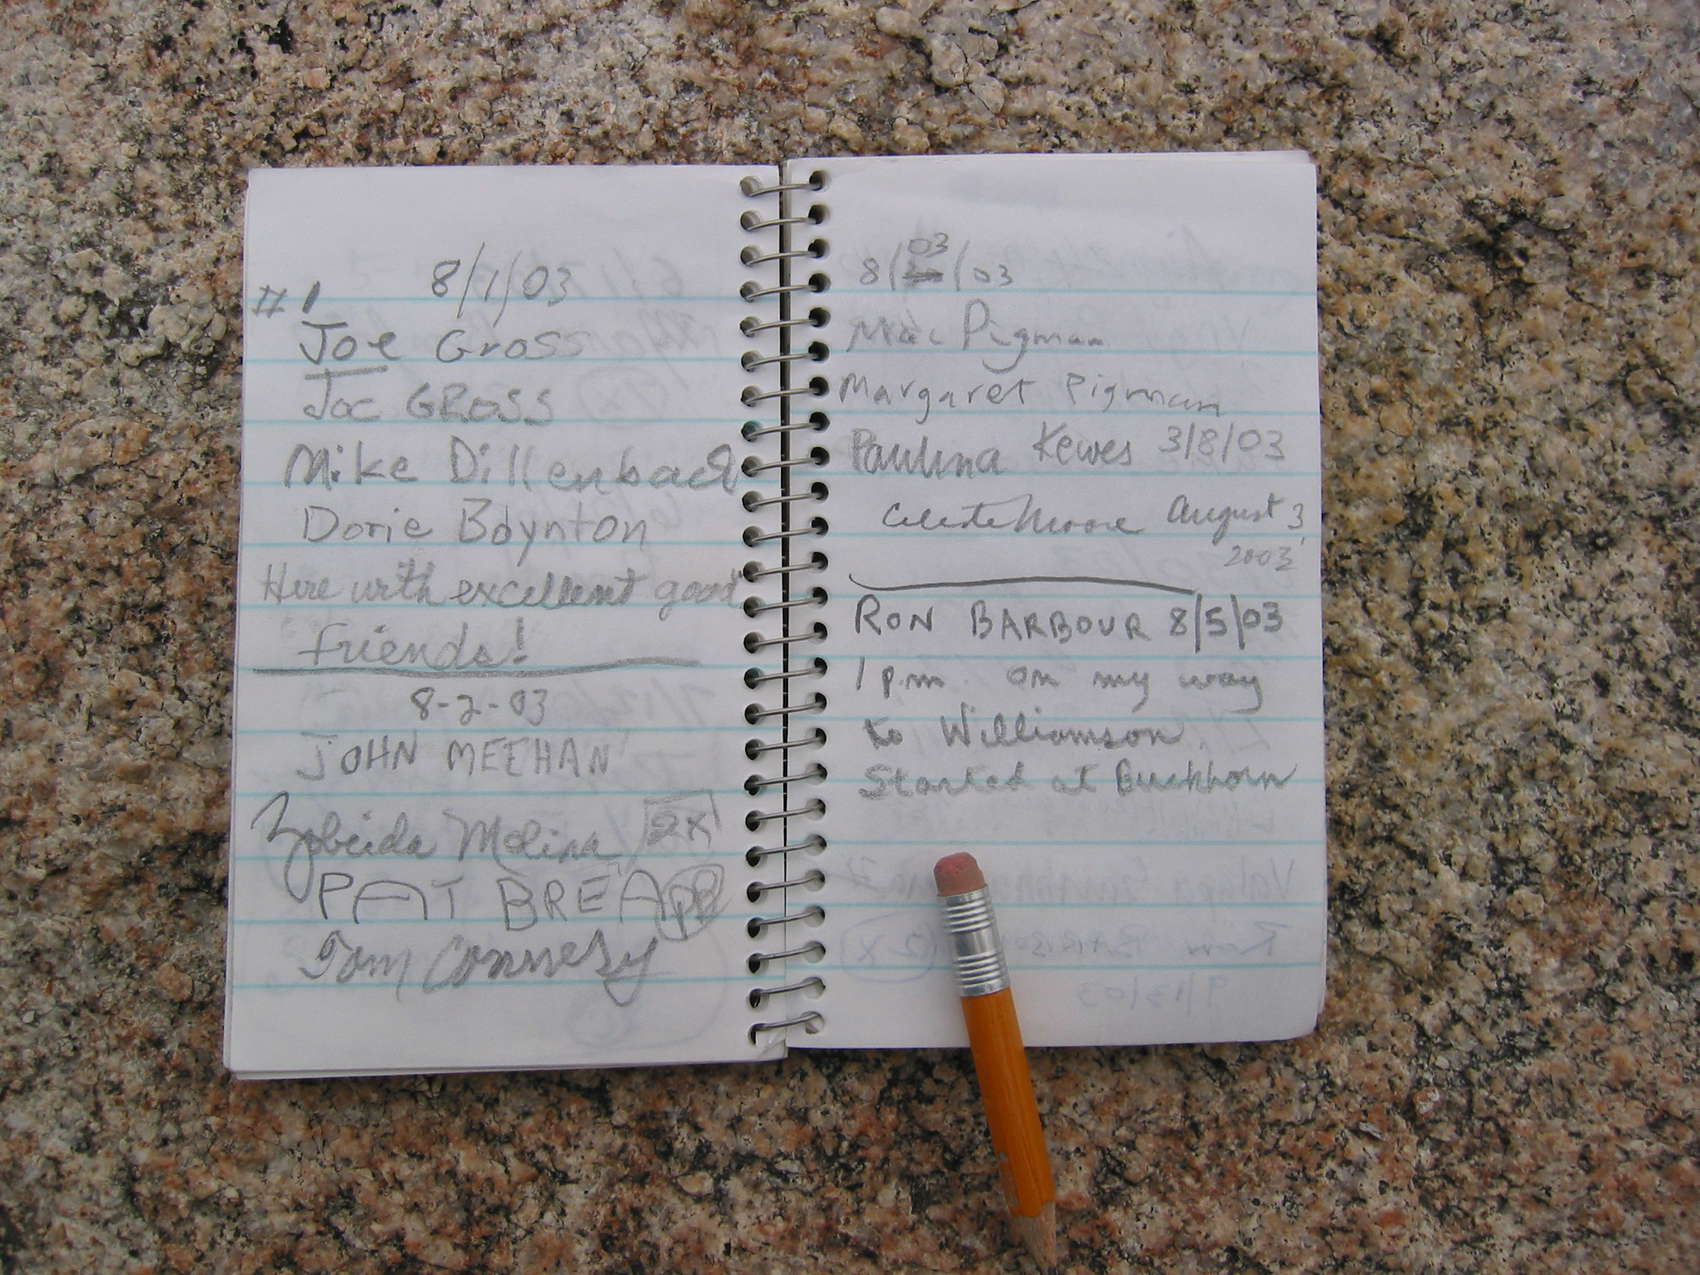 #1 8/1/03
Joe Gross
Joe GROSS
Mike Dillenback
Dorie Boynton
Here with excellent good
friends!
8-2-03
JOHN MEEHAN
Zobeida Molina 2X
PAT BREA PB
Tom Connery
03
8/ /03
Mac Pigman
Margaret Pigman
Paulina Kewes 3/8/03
Celeste Moore August 3
2003
RON BARBOUR 8/5/03
1 p.m. on my way
to Williamson.
Started at Buckhorn